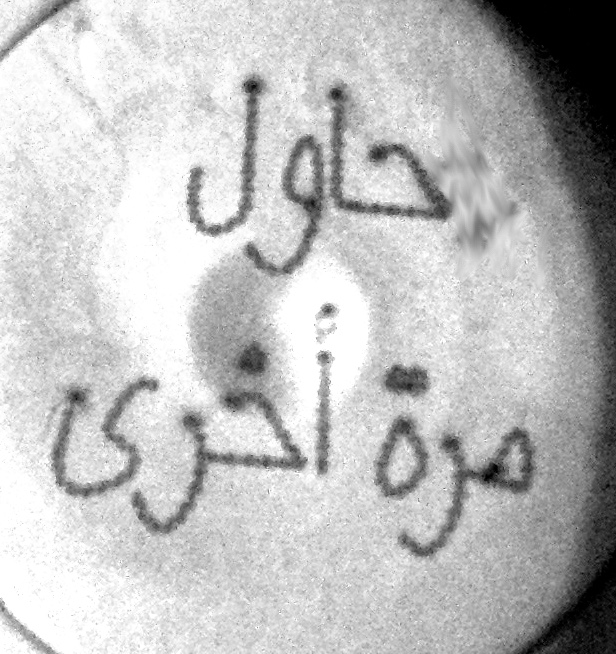 حاول
مرة أخرى